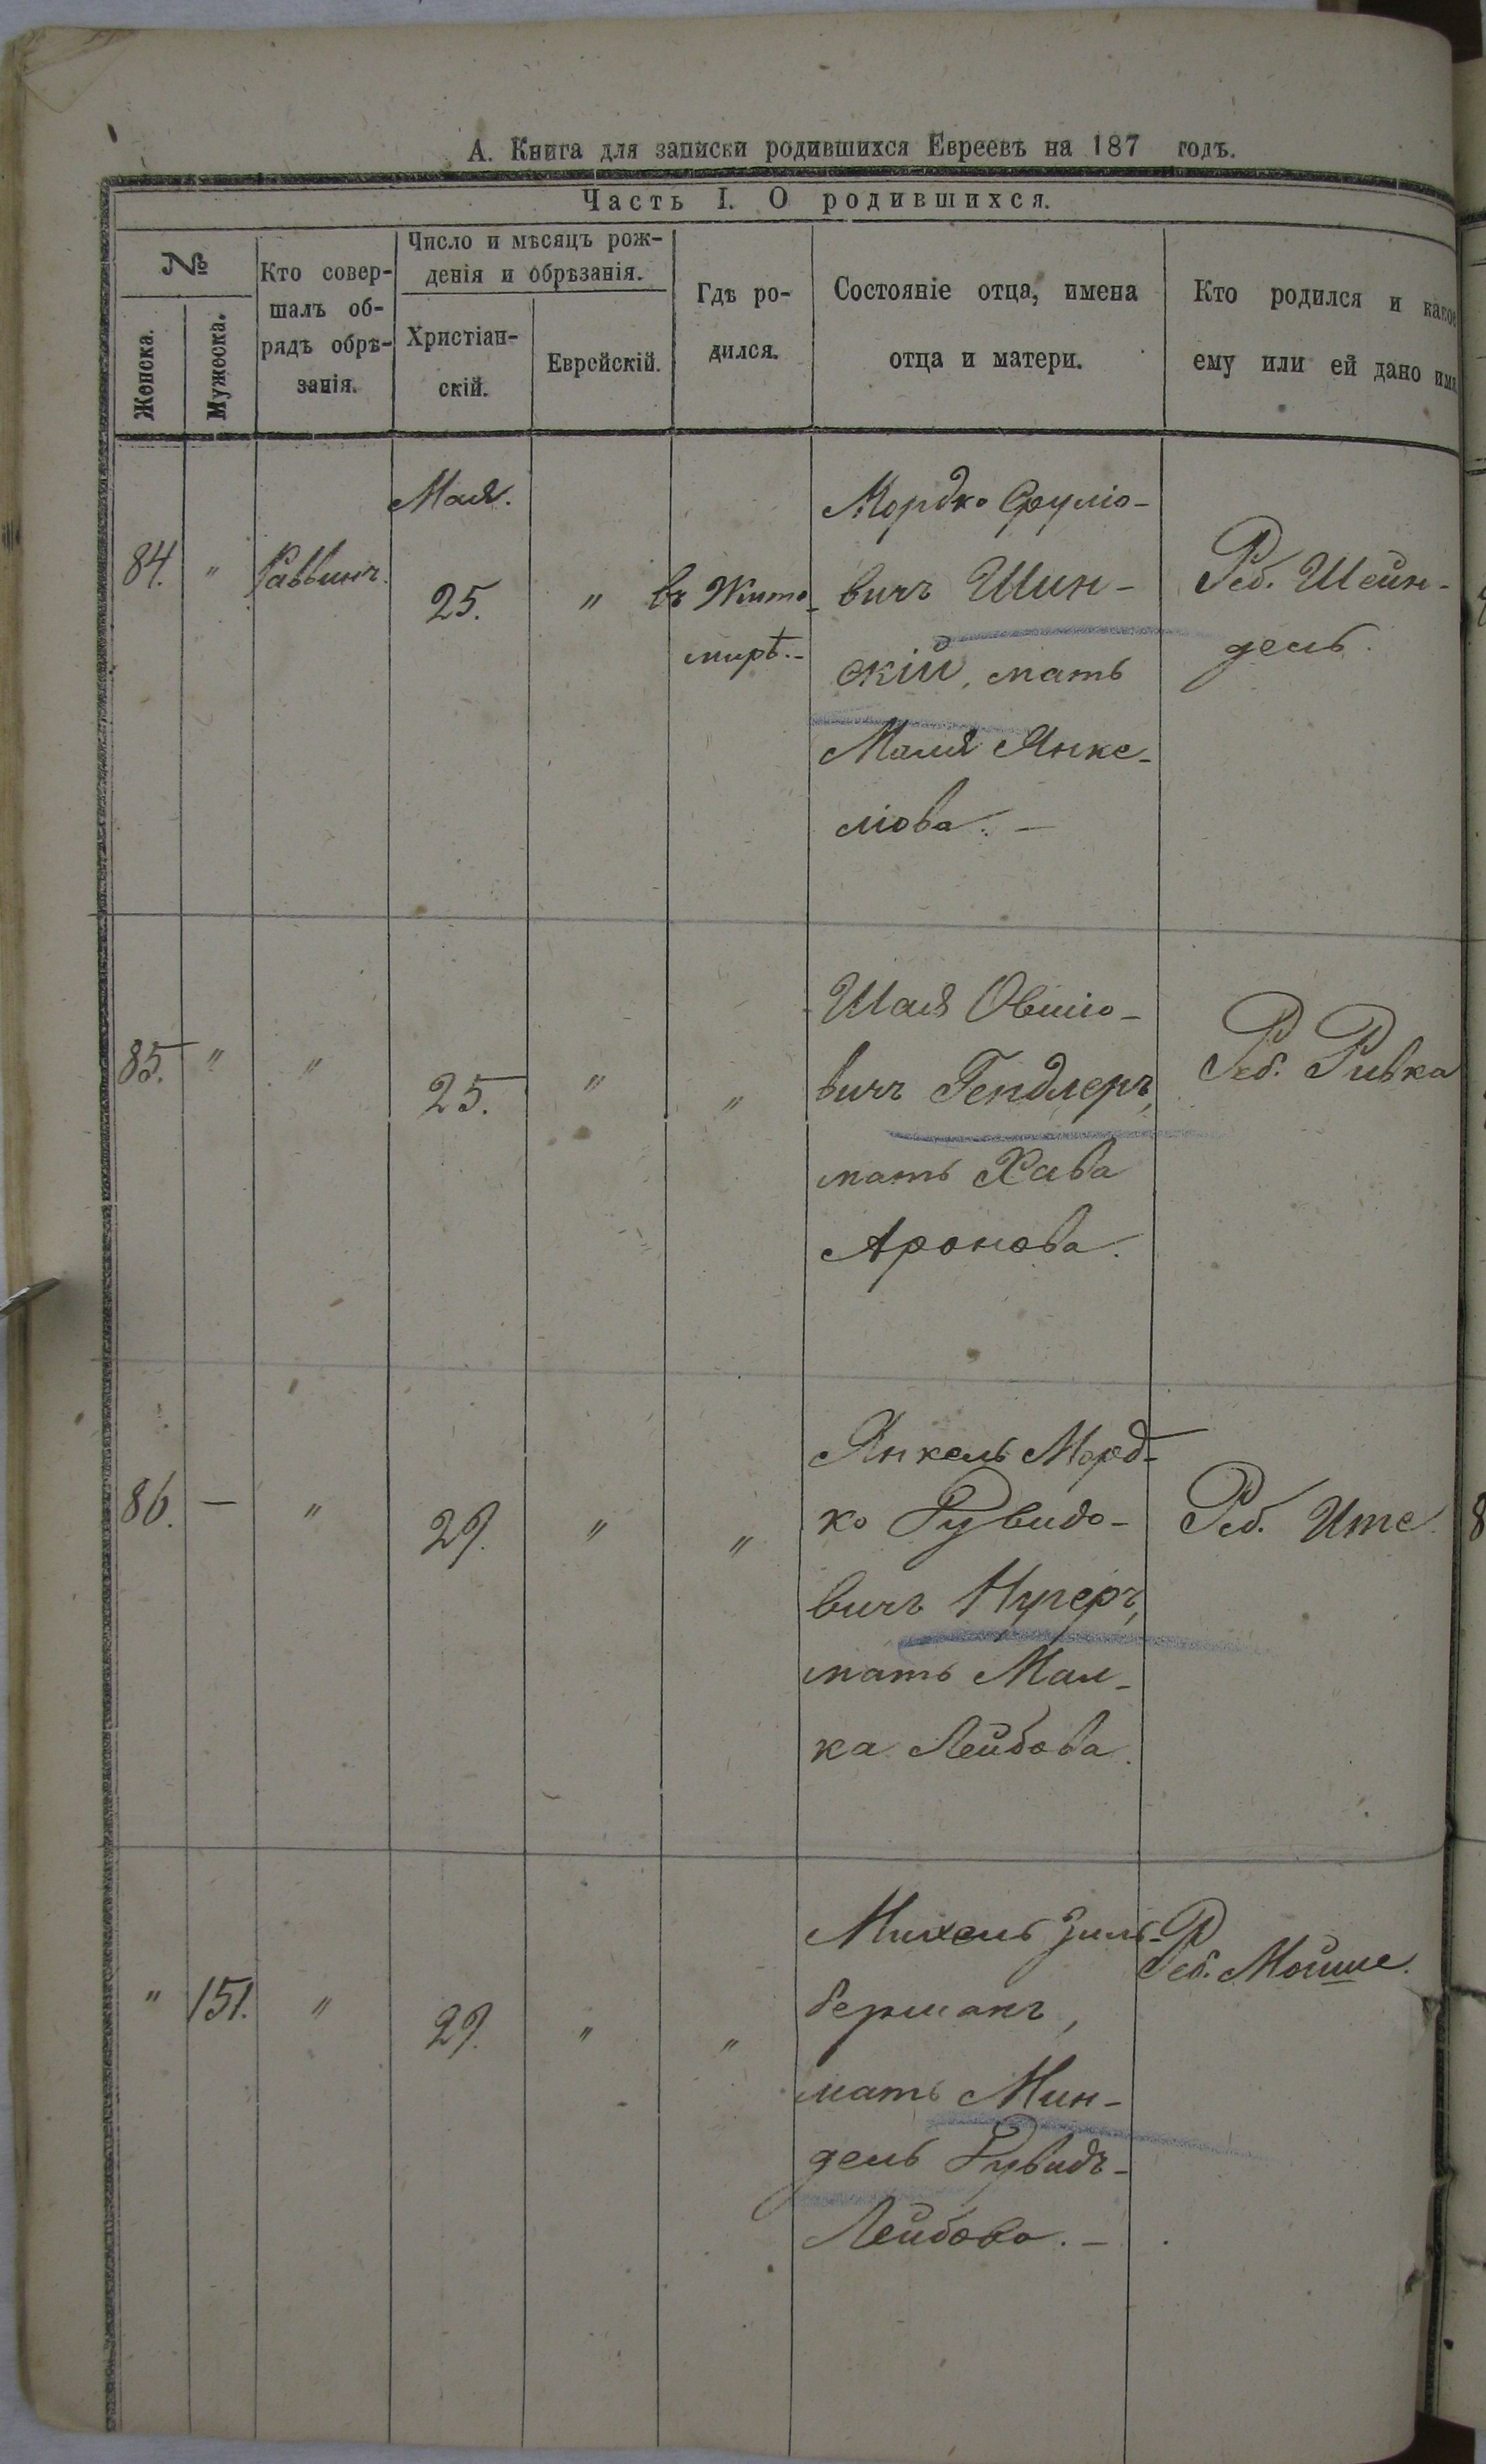 А. Книга для записки родившихся Евреевъ на 187 годъ.
Часть I. О родившихся.
№
Женска.
Мужеска.
Кто совер-
шалъ об-
рядъ обрѣ-
занія.
Число и мѣсяцъ рож-
денія и обрѣзанія.
Христіан-
скій.
Еврейскій.
Гдѣ ро-
дился.
Состояніе отца, имена
отца и матери.
Кто родился и какое
ему или ей дано имя
Мая.
84. " Раввинъ. 25. "
въ Жито-
мирѣ.-
Мордко Сруліо-
вичъ Шин-
скій, мать
Маля Янке-
ліова. -
Реб. Шейн-
дель.
85. " " 25. " "
Шая Овшіо-
вичъ Гендлеръ,
мать Хава
Аронова.
Реб. Ривка
86. — " 29. " "
Янкель Морд-
ко Рувидо-
вичъ Нугеръ,
мать Мал-
ка Лейбова.
Реб. Ите.
" 151. " 29. " "
Михель Зиль-
берманъ,
мать Мин-
дель Рувидъ-
Лейбова. -
Реб. Мойше.
8